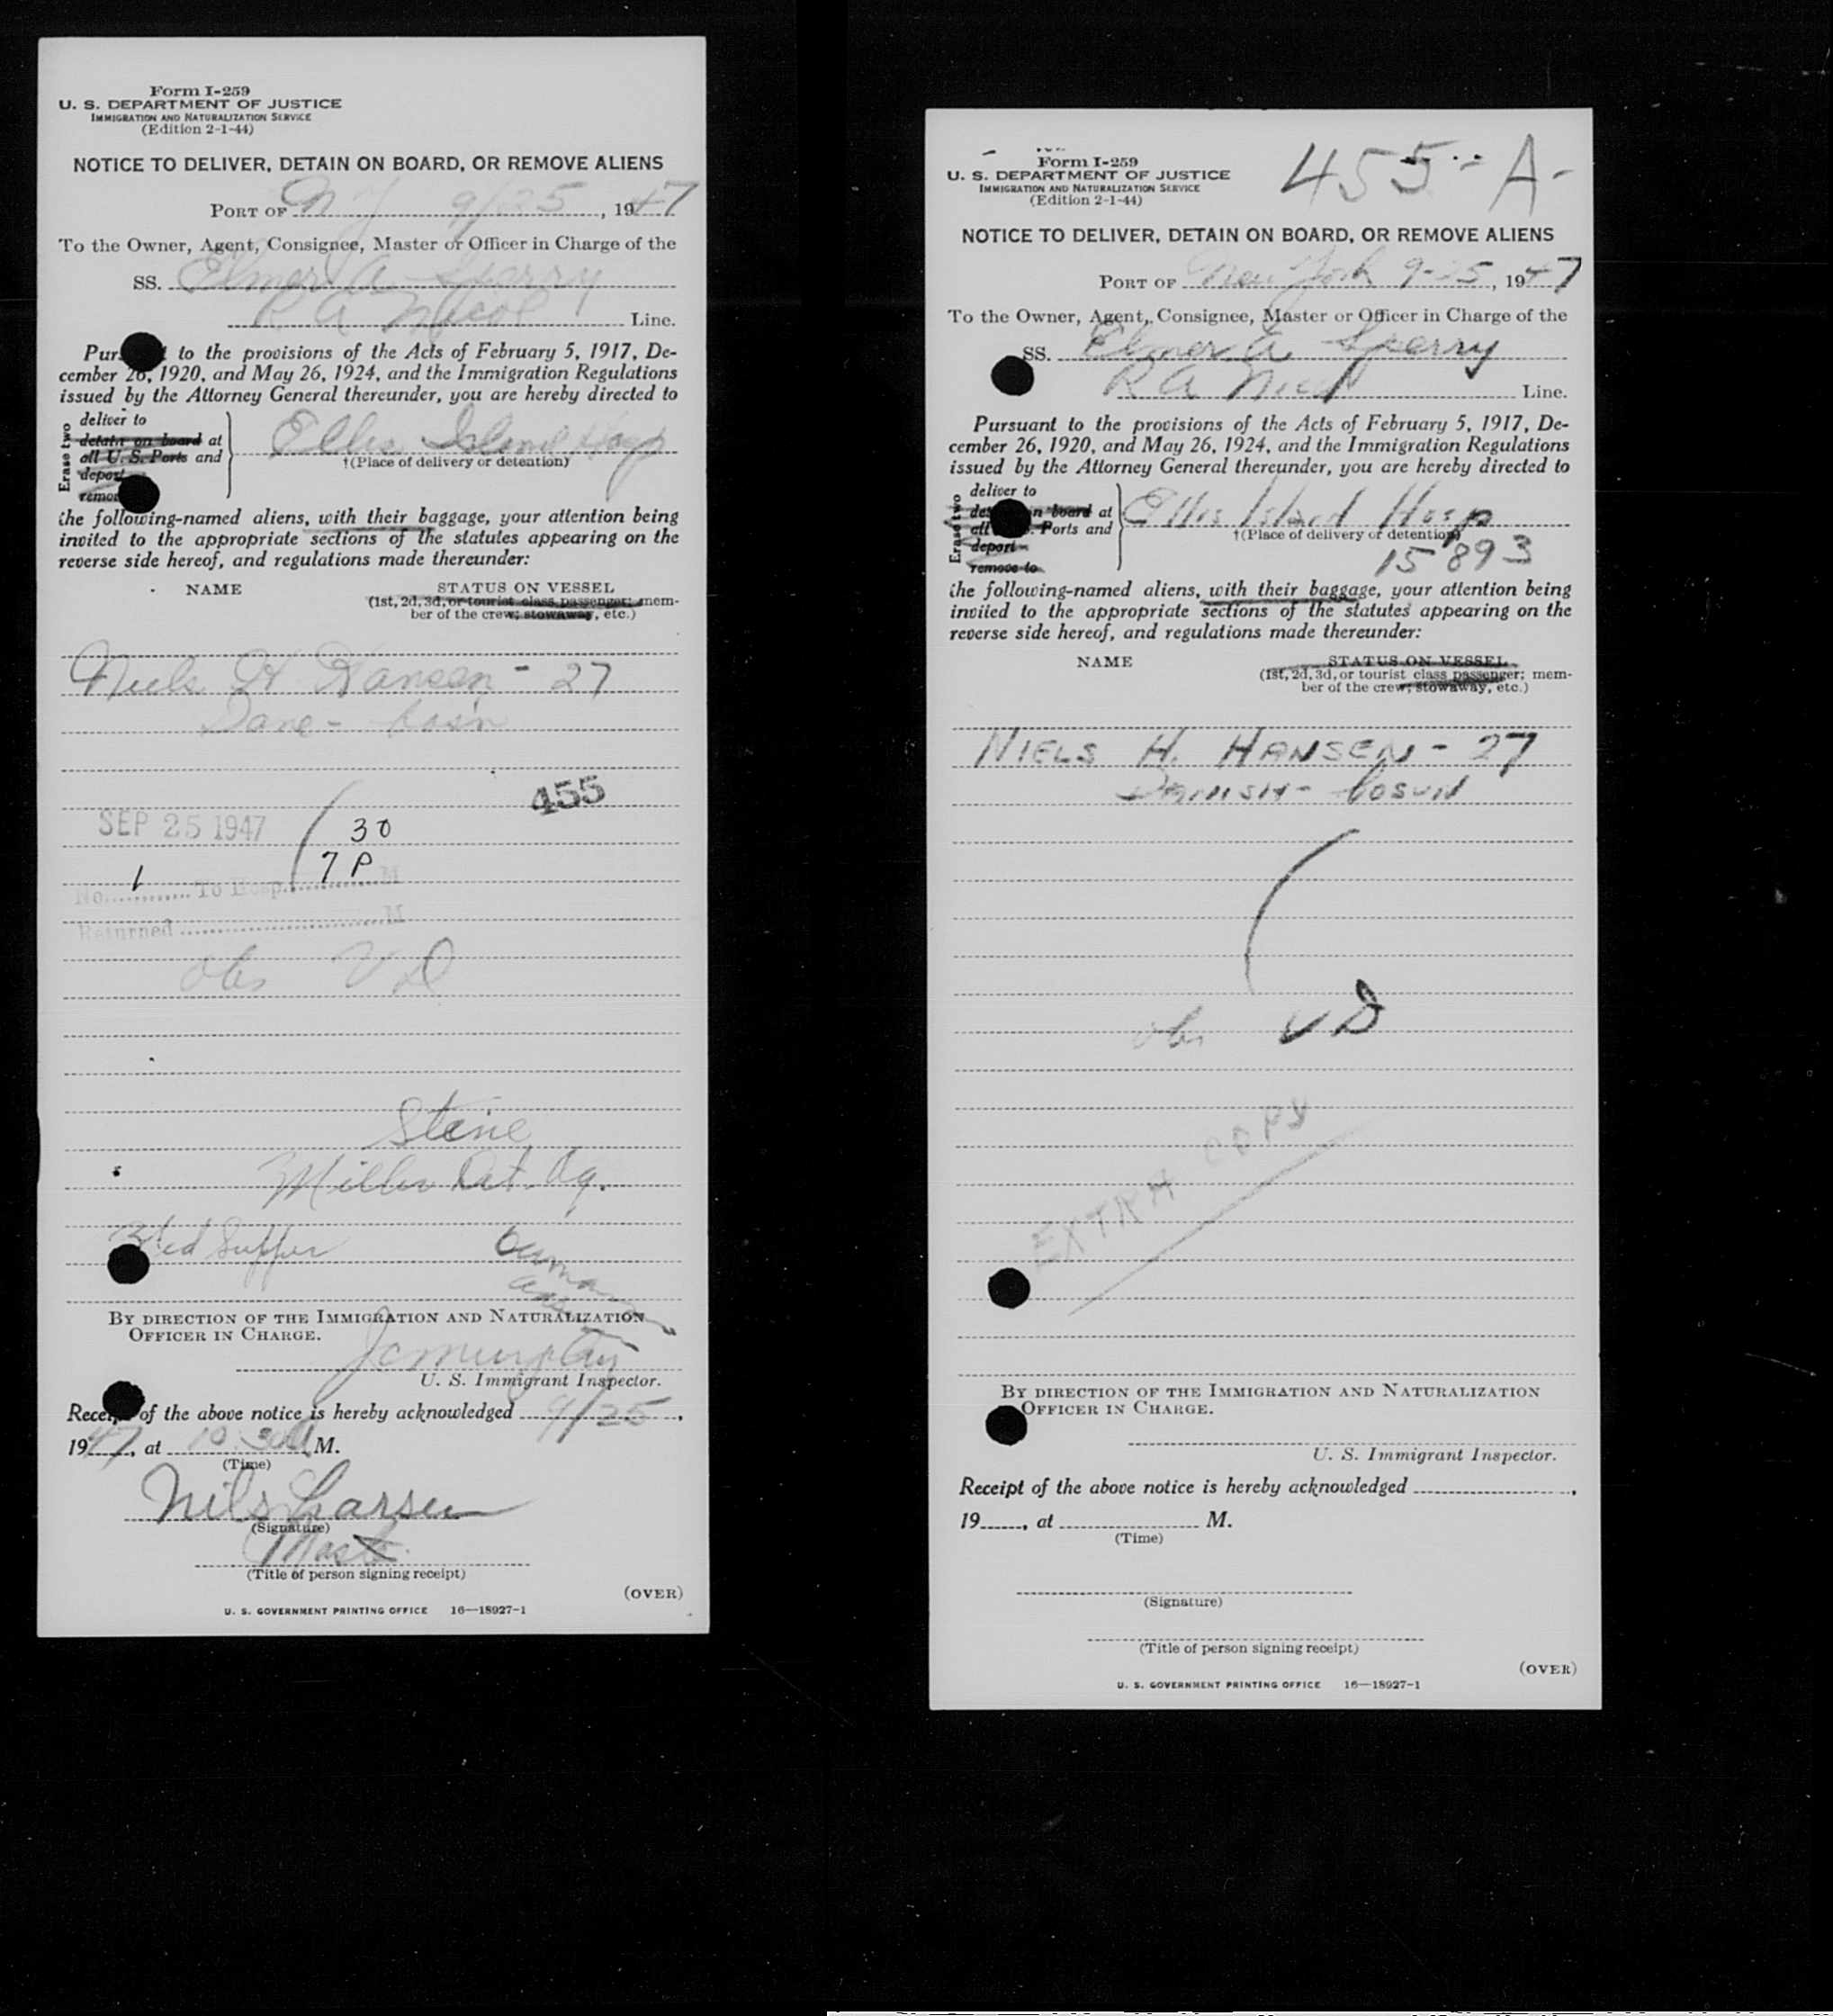 Form I-259
U. S. DEPARTMENT OF JUSTICE
IMMIGRATION AND NATURALIZATION SERVICE
(Edition 2-1-44)
NOTICE TO DELIVER, DETAIN ON BOARD, OR REMOVE ALIENS
PORT OF N Y 9/25, 1947
To the Owner, Agent, Consignee, Master or Officer in Charge of the
SS. Elmer A Sperry
R A Nicol Line.
Pursuant to the provisions of the Acts of February 5, 1917, De-
cember 26, 1920, and May 26, 1924, and the Immigration Regulations
issued by the Attorney General thereunder, you are hereby directed to
Erase two
deliver to
detain on board at
all U. S. Ports and
deport
remove
Ellis Island Hosp
†(Place of delivery or detention)
the following-named aliens, with their baggage, your attention being
invited to the appropriate sections of the statutes appearing on the
reverse side hereof, and regulations made thereunder:
NAME STATUS ON VESSEL
(1st, 2d, 3d, or tourist class passenger; mem-
ber of the crew; stowaway, etc.)
Niels H Hansen - 27
Dane - bosn
455
SEP 25 1947
30
No. 1 To Hosp. 7 P M
Returned M
obs V D
Steve
Miller Det. Ag.
Supper
BY DIRECTION OF THE IMMIGRATION AND NATURALIZATION
OFFICER IN CHARGE.
J C Murphy
U. S. Immigrant Inspector.
Receipt of the above notice is hereby acknowledged 9/25,
1947, at 10 30 A M.
(Time)
Nils Larsen
(Signature)
Master
(Title of person signing receipt)
(OVER)
U. S. GOVERNMENT PRINTING OFFICE 16—18927-1
455-A-
Form I-259
U. S. DEPARTMENT OF JUSTICE
IMMIGRATION AND NATURALIZATION SERVICE
(Edition 2-1-44)
NOTICE TO DELIVER, DETAIN ON BOARD, OR REMOVE ALIENS
PORT OF New York 9-25, 1947
To the Owner, Agent, Consignee, Master or Officer in Charge of the
SS. Elmer A Sperry
R A Nicol Line.
Pursuant to the provisions of the Acts of February 5, 1917, De-
cember 26, 1920, and May 26, 1924, and the Immigration Regulations
issued by the Attorney General thereunder, you are hereby directed to
Erase two
deliver to
detain on board at
all U. S. Ports and
deport
remove to
Ellis Island Hosp
†(Place of delivery or detention)
15893
the following-named aliens, with their baggage, your attention being
invited to the appropriate sections of the statutes appearing on the
reverse side hereof, and regulations made thereunder:
NAME STATUS ON VESSEL
(1st, 2d, 3d, or tourist class passenger; mem-
ber of the crew; stowaway, etc.)
NIELS H. HANSEN - 27
DANISH - bosun
obs V D
EXTRA COPY
BY DIRECTION OF THE IMMIGRATION AND NATURALIZATION
OFFICER IN CHARGE.
U. S. Immigrant Inspector.
Receipt of the above notice is hereby acknowledged ,
19 , at M.
(Time)
(Signature)
(Title of person signing receipt)
(OVER)
U. S. GOVERNMENT PRINTING OFFICE 16—18927-1